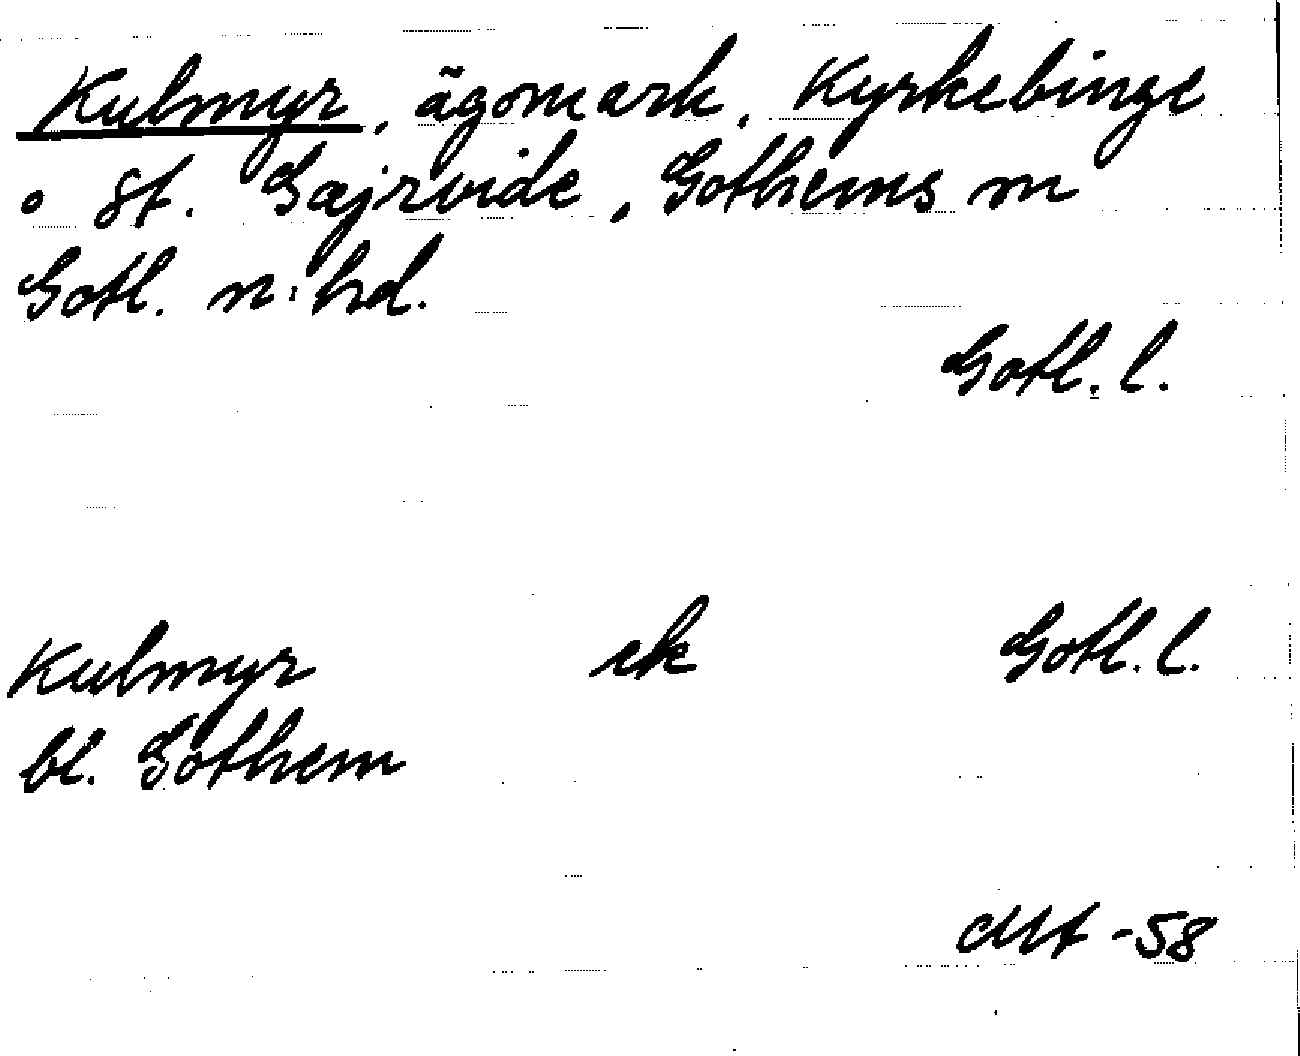 Kulmyr, ägomark, Kyrkebinge
o St. Gajrvide, Gothems sn
Gotl. n. hd.
Gotl. l.
Kulmyr ek Gotl. l.
bl. Gothem
-58